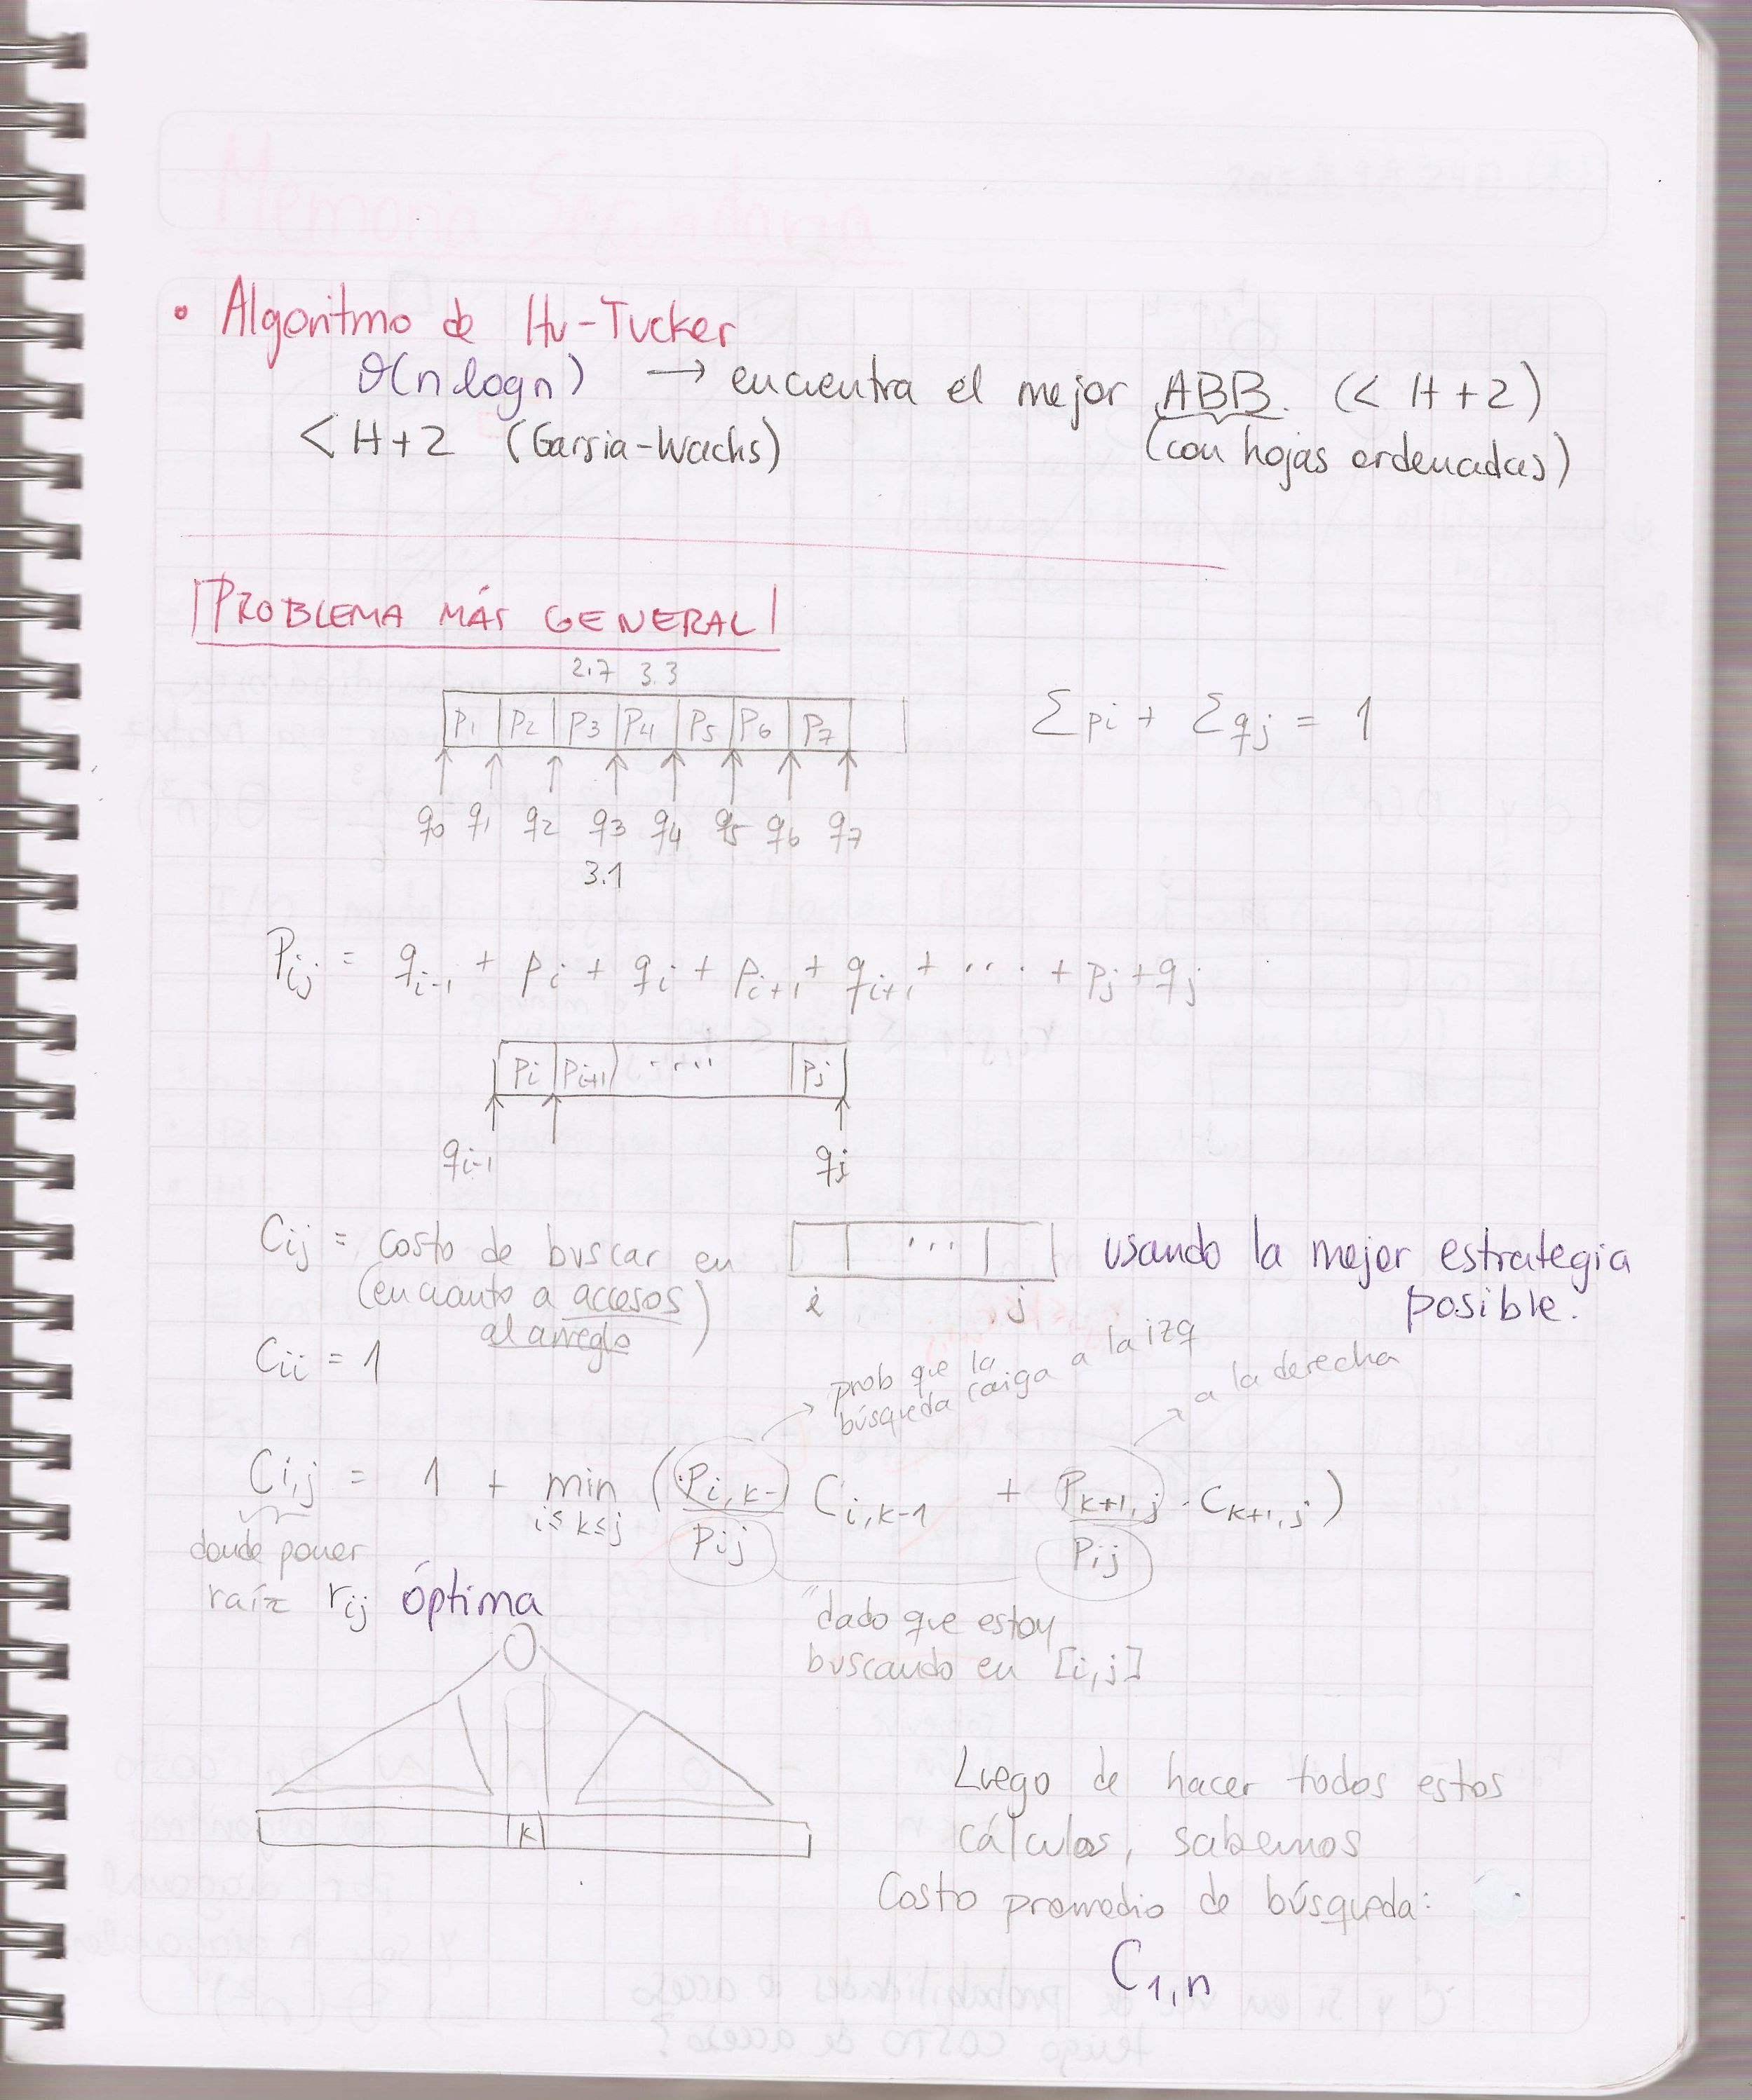 • Algoritmo de Hu-Tucker
θ(n log n) → encuentra el mejor ABB. (< H+2)
< H+2 (Garsia-Wachs) (con hojas ordenadas)
PROBLEMA MÁS GENERAL
2.7 3.3
p1 p2 p3 p4 p5 p6 p7 Σpi + Σqj = 1
q0 q1 q2 q3 q4 q5 q6 q7
3.1
Pij = qi-1 + pi + qi + pi+1 + qi+1 + ... + pj + qj
pi pi+1 ..... pj
qi-1 qj
Cij = costo de buscar en ... usando la mejor estrategia
(en cuanto a accesos i j posible.
al arreglo)
Cii = 1
prob que la a la izq
búsqueda caiga
a la derecha
Ci,j = 1 + min i≤k≤j (Pi,k-1/Pij Ci,k-1 + Pk+1,j/Pij · Ck+1,j)
donde poner
raíz rij óptima
"dado que estoy
buscando en [i,j]
k
Luego de hacer todos estos
cálculos, sabemos
Costo promedio de búsqueda:
C1,n